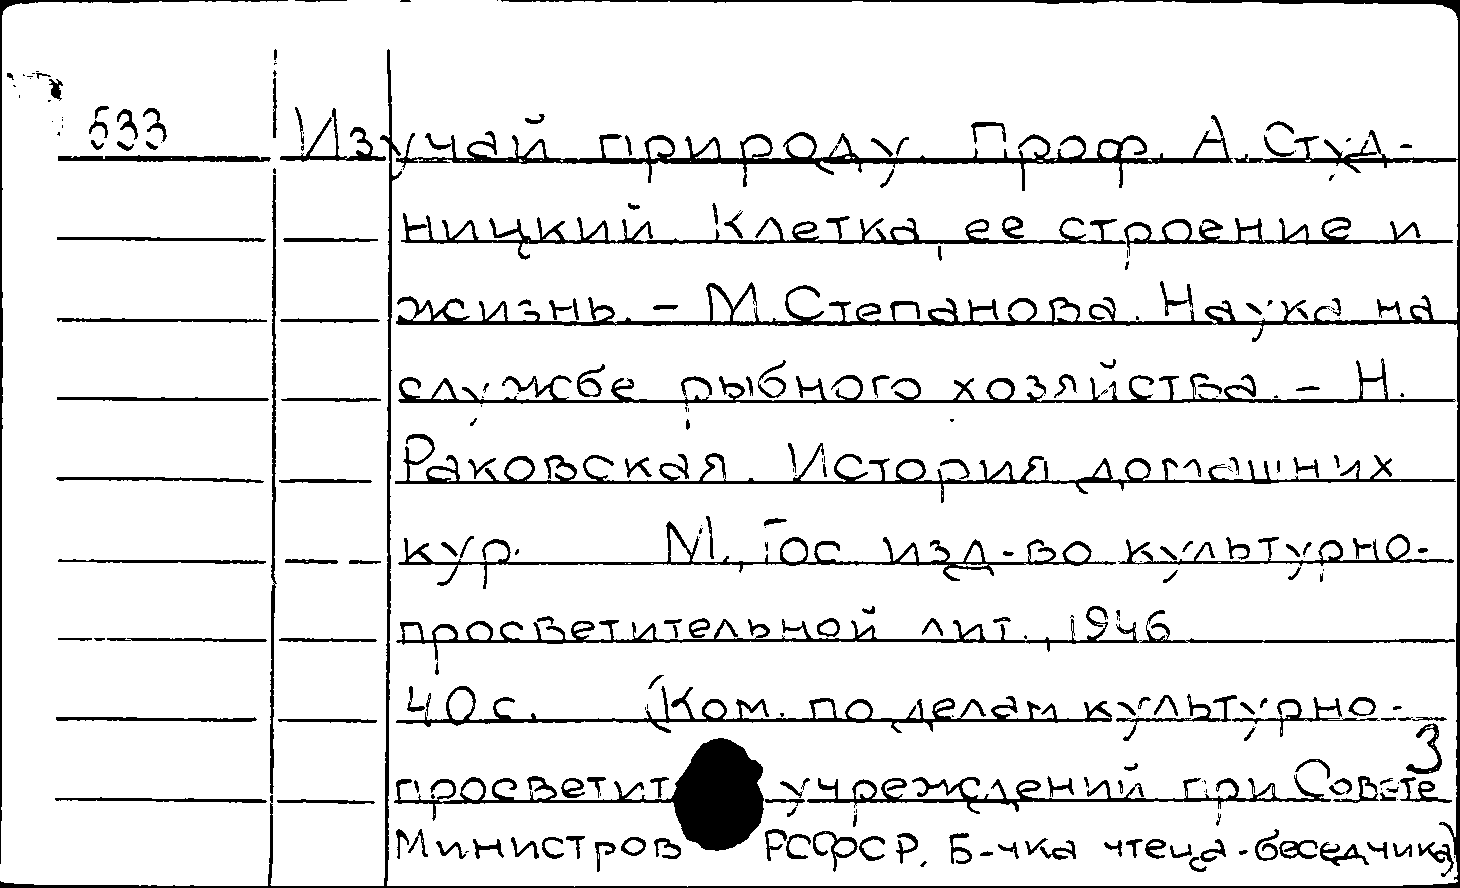 533 Изучай природу. Проф. А. Студ-
ницкий. Клетка, ее строение и
жизнь. - М. Степанова. Наука на
службе рыбного хозяйства. - Н.
Раковская. История домашних
кур. М., Гос. изд-во культурно-
просветительной лит., 1946.
40 с. (Ком. по делам культурно-
3
просветит учреждений при Совете
Министров РСФСР. Б-чка чтеца-беседчика)